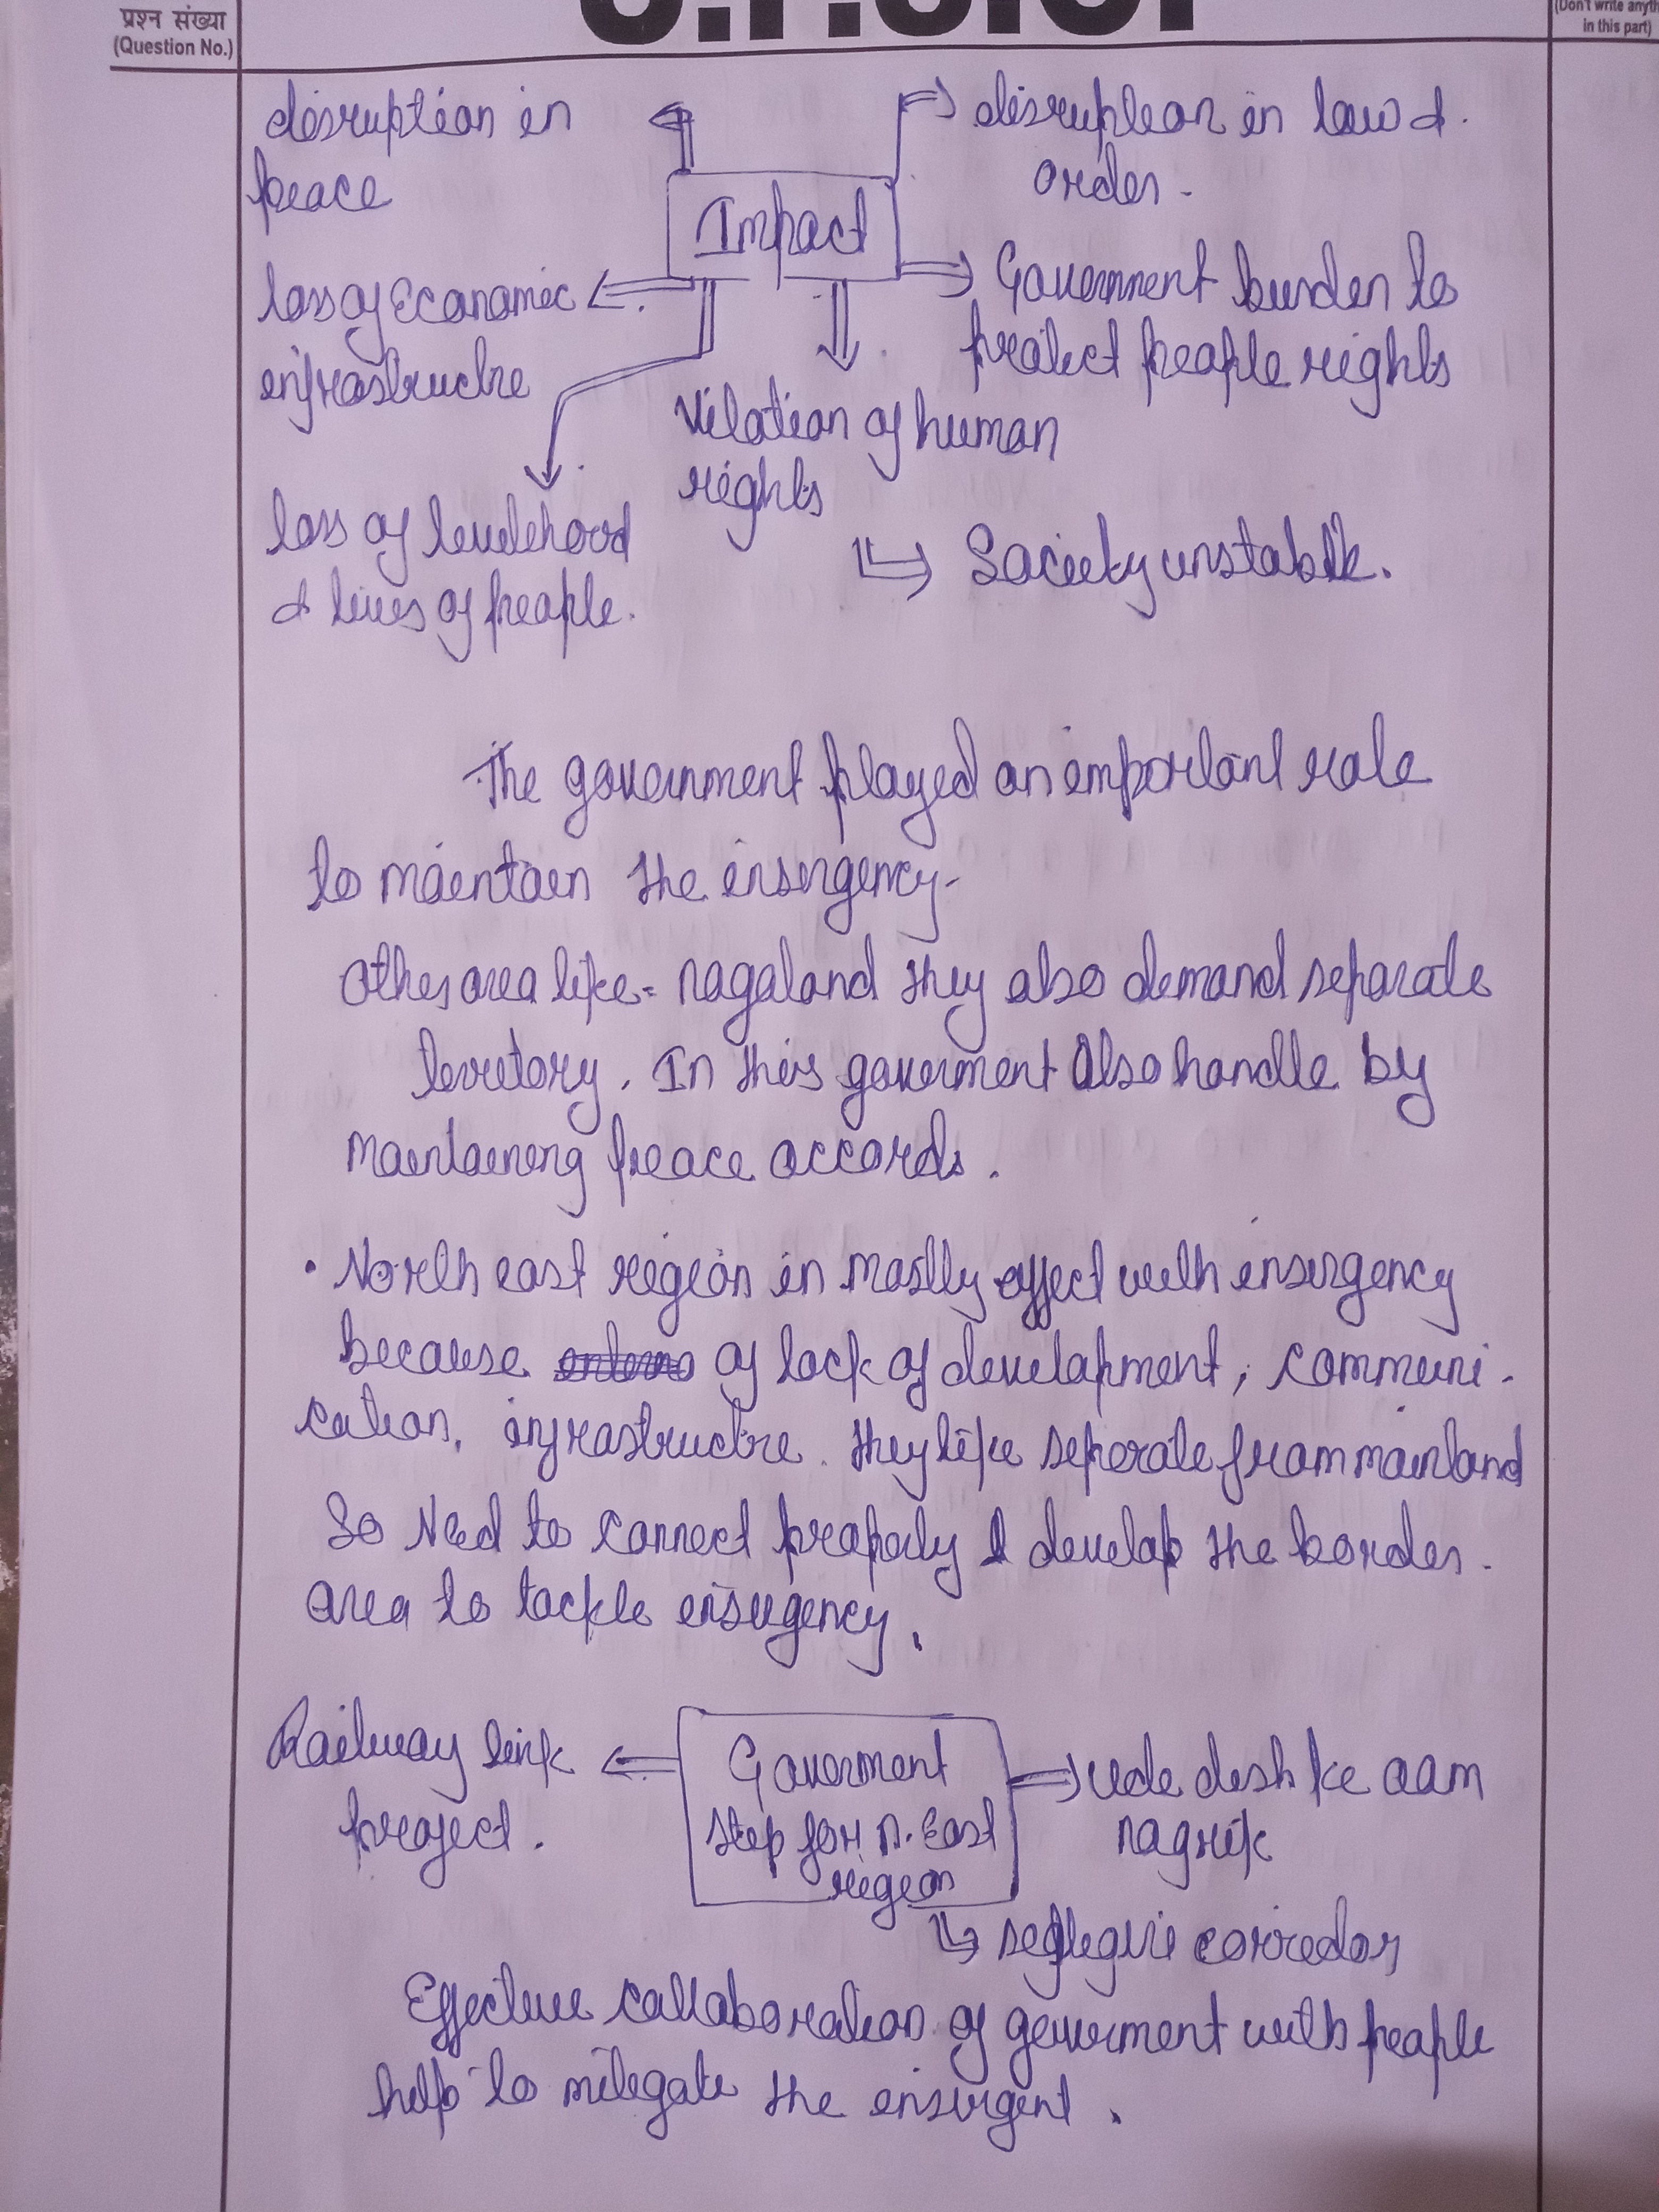 प्रश्न संख्या
(Question No.)
(Don't write anyth
in this part)
disruption in
peace
disruption in law &
order.
Impact
loss of Economic
infrastructre
Government burden to
protect people rights
Vilation of human
rights
loss of livelihood
& lives of people.
Society unstable.
The government played an important role
to maintain the insurgency.
Other area like = nagaland they also demand separate
territory. In this goverment Also handle by
maintaining peace accords.
• North east region in mostly effect with insurgency
because of lack of development, communi-
cation, infrastructre. they like seperate from mainland
So Need to connect properly & develop the border
area to tackle insurgency.
Railway link
project.
Goverment
step for N. East
region
ude desh ke aam
nagrik
corridor
Effective collaboration of goverment with people
help to mitigate the insurgent.